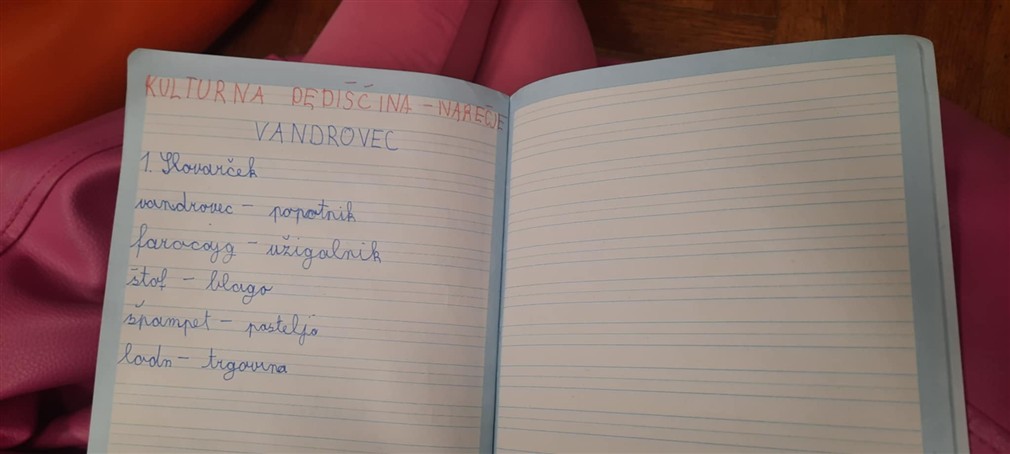 KULTURNA DEDIŠČINA - NAREČJE
VANDROVEC
1. Slovarček
vandrovec - popotnik
farocajg - užigalnik
štof - blago
špampet - postelja
ladn - trgovina